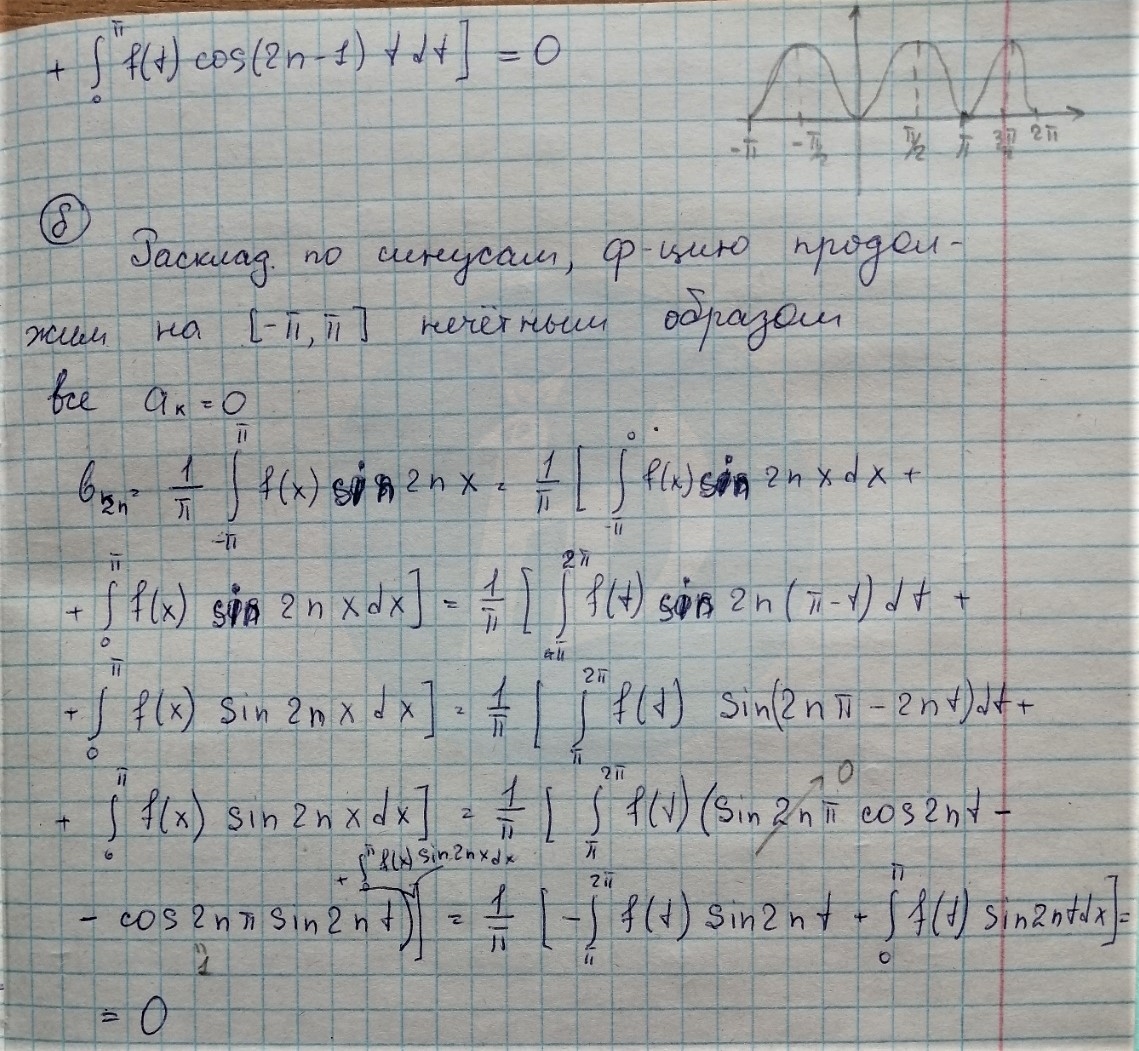 + ∫₀^π f(t) cos(2n-1) t dt] = 0
-π -π/2 π/2 π 3π/2 2π
б
Расклад. по синусам, ф-цию продол-
жим на [-π, π] нечётным образом
все aₖ = 0
b₂ₙ = 1/π ∫_{-π}^{π} f(x) sin 2n x = 1/π [ ∫_{-π}^{0} f(x) sin 2n x dx +
+ ∫₀^π f(x) sin 2n x dx] = 1/π [ ∫_{π}^{2π} f(t) sin 2n (π-t) dt +
+ ∫₀^π f(x) sin 2n x dx] = 1/π [ ∫_π^{2π} f(t) sin(2nπ - 2nt)dt +
+ ∫₀^π f(x) sin 2n x dx] = 1/π [ ∫_π^{2π} f(t) (sin 2nπ cos 2nt -
0
+ ∫₀^π f(x) sin 2nx dx
- cos 2nπ sin 2nt)] = 1/π [ -∫_π^{2π} f(t) sin 2nt + ∫₀^π f(t) sin 2nt dx] =
" 1
= 0